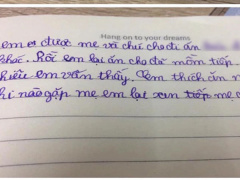 Hang on to your dreams
em được mẹ và chị cho đi ăn
khác. Rồi em lại ăn cho đỡ mồm tiếp.
nhiêu em vẫn thấy. Cem thích ăn
khi nào gặp mẹ em lại xin tiếp mẹ